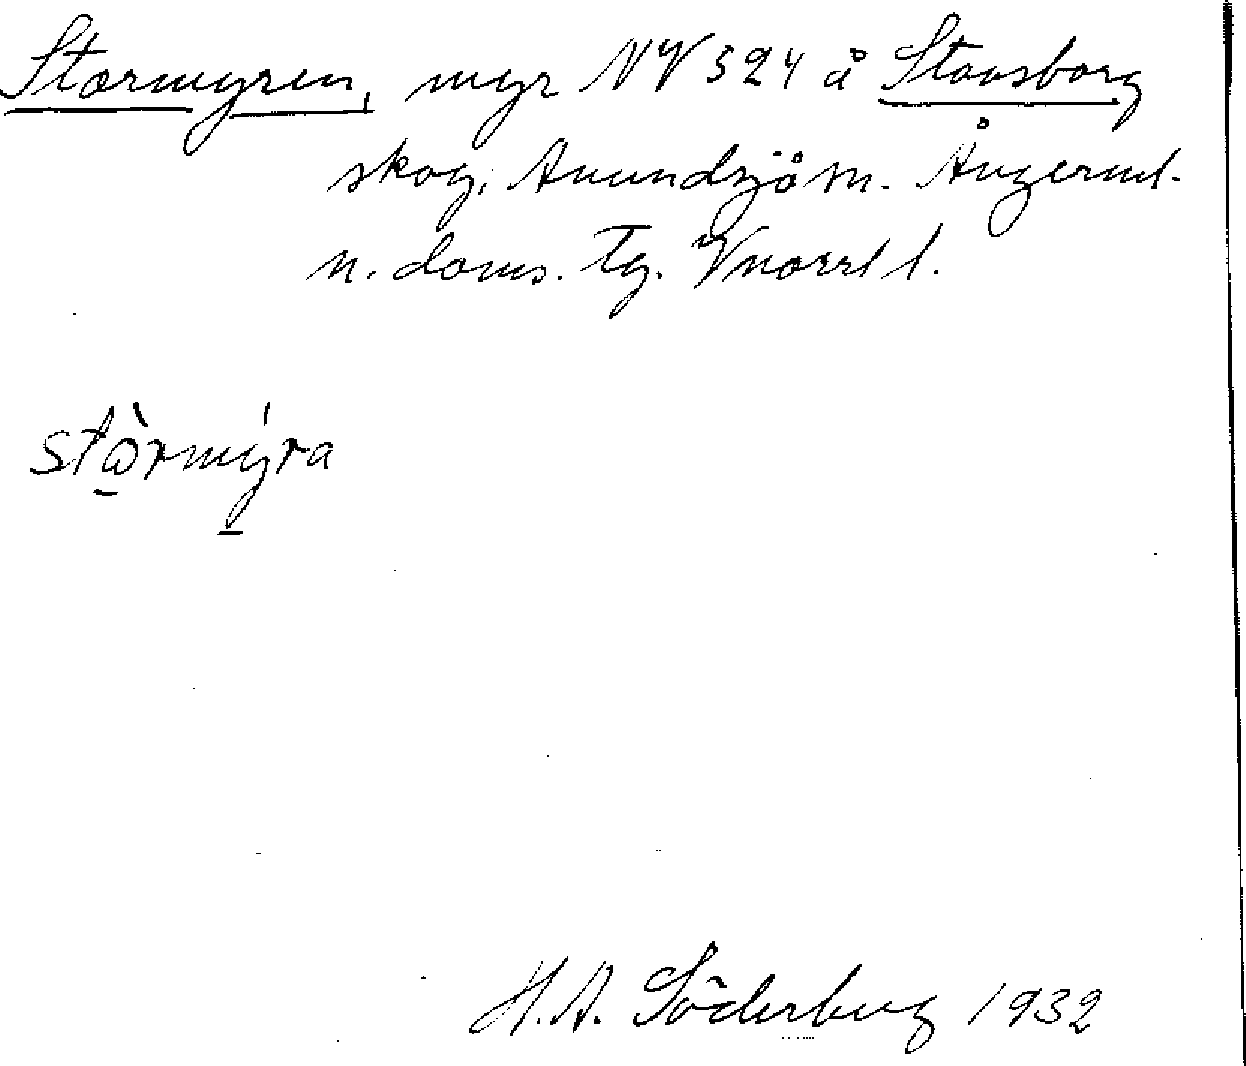 Stormyren, myr NV 324 å Stavsborg
skog, Anundsjö sn. Ångerml.
n. doms. Tg. Vnorrl l.
stòrmýra
H. A. Söderberg 1932